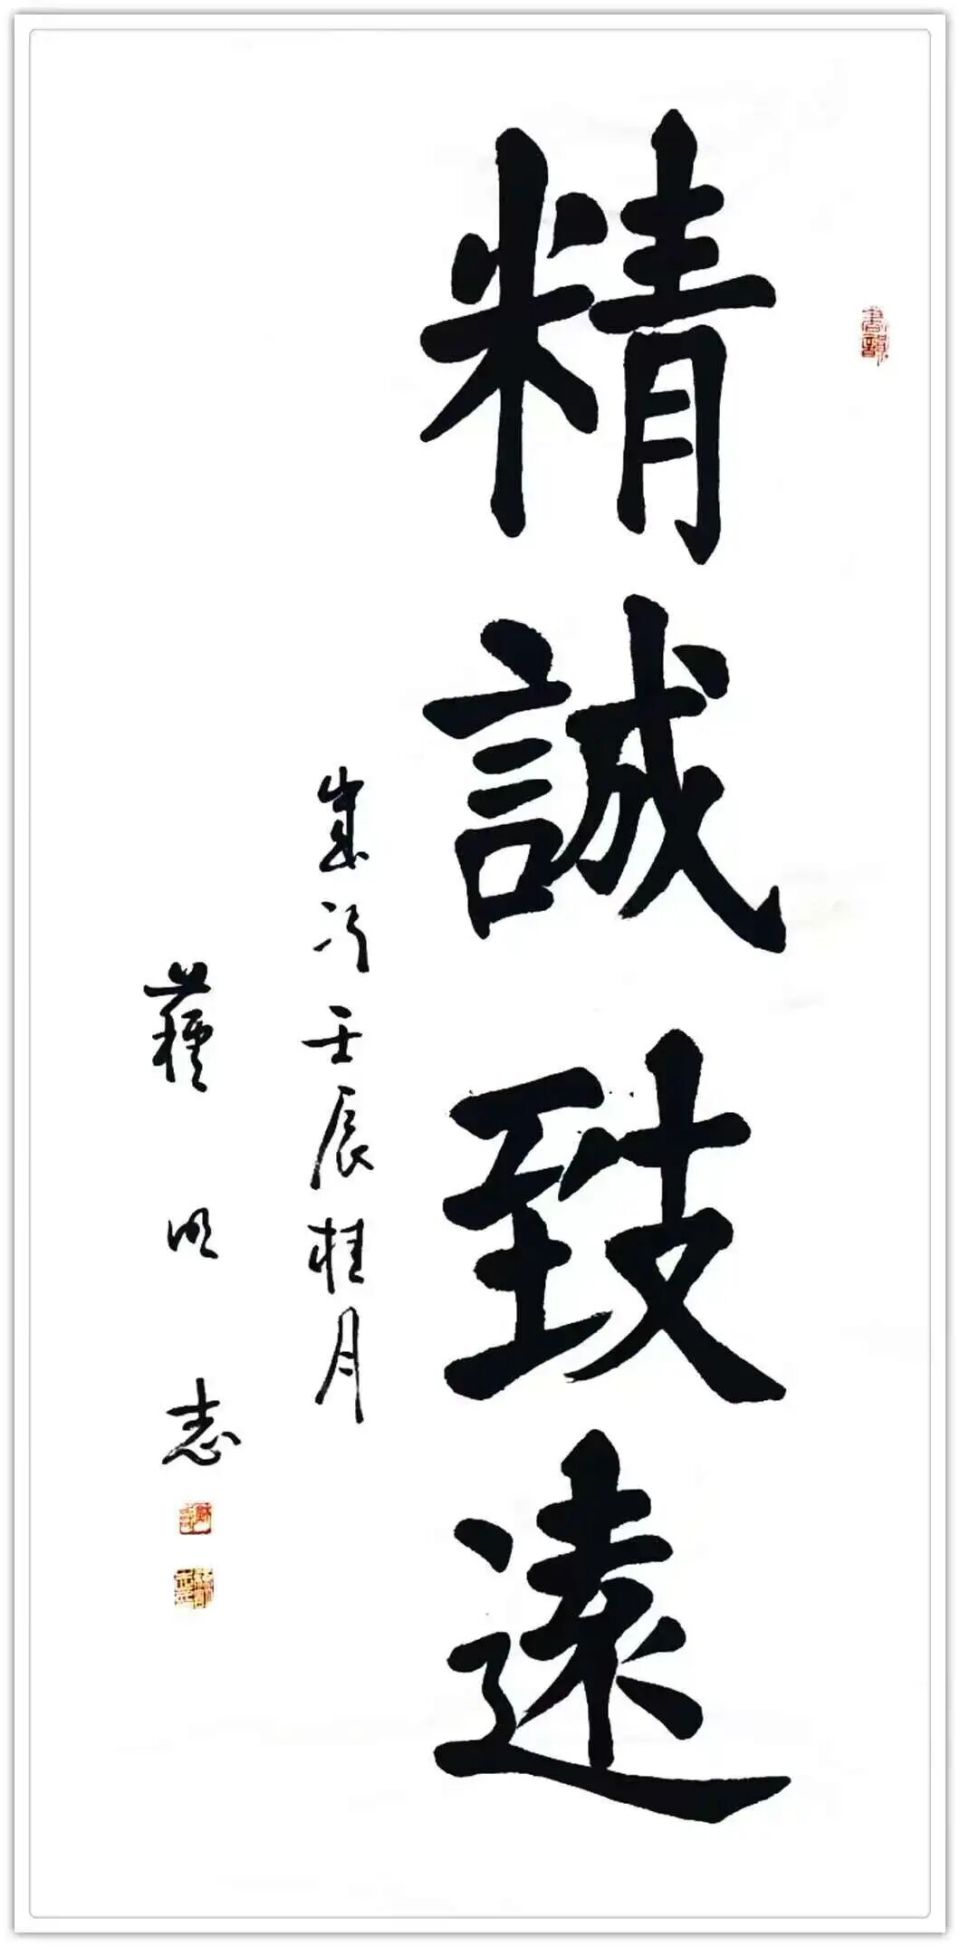 精誠致遠
歲次壬辰桂月
蘇明志
書韻